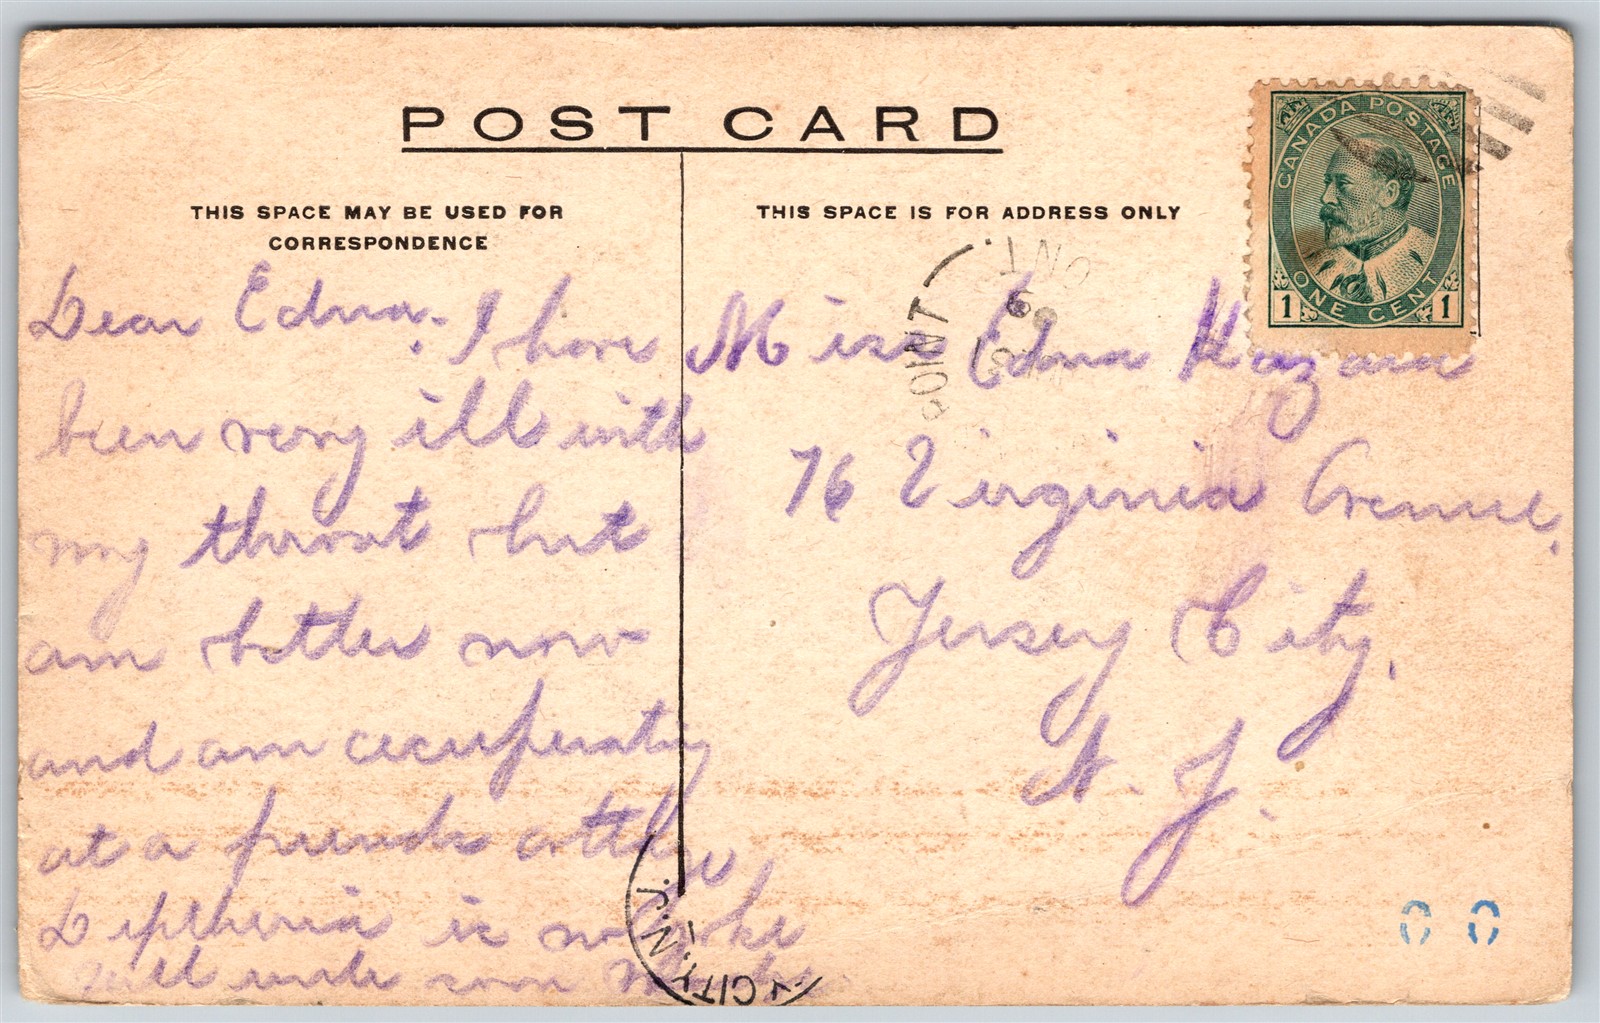 POST CARD
THIS SPACE MAY BE USED FOR
CORRESPONDENCE
Dear Edna. I have
been very ill with
my throat but
am better now
and am recuperating
at a friends cottage
Diptheria is no joke
Will write soon
THIS SPACE IS FOR ADDRESS ONLY
Miss Edna Hazard
76 Virginia Avenue.
Jersey City,
N. J.
CANADA POSTAGE
ONE CENT
1 1
POINT
ONT.
CITY, N.J.